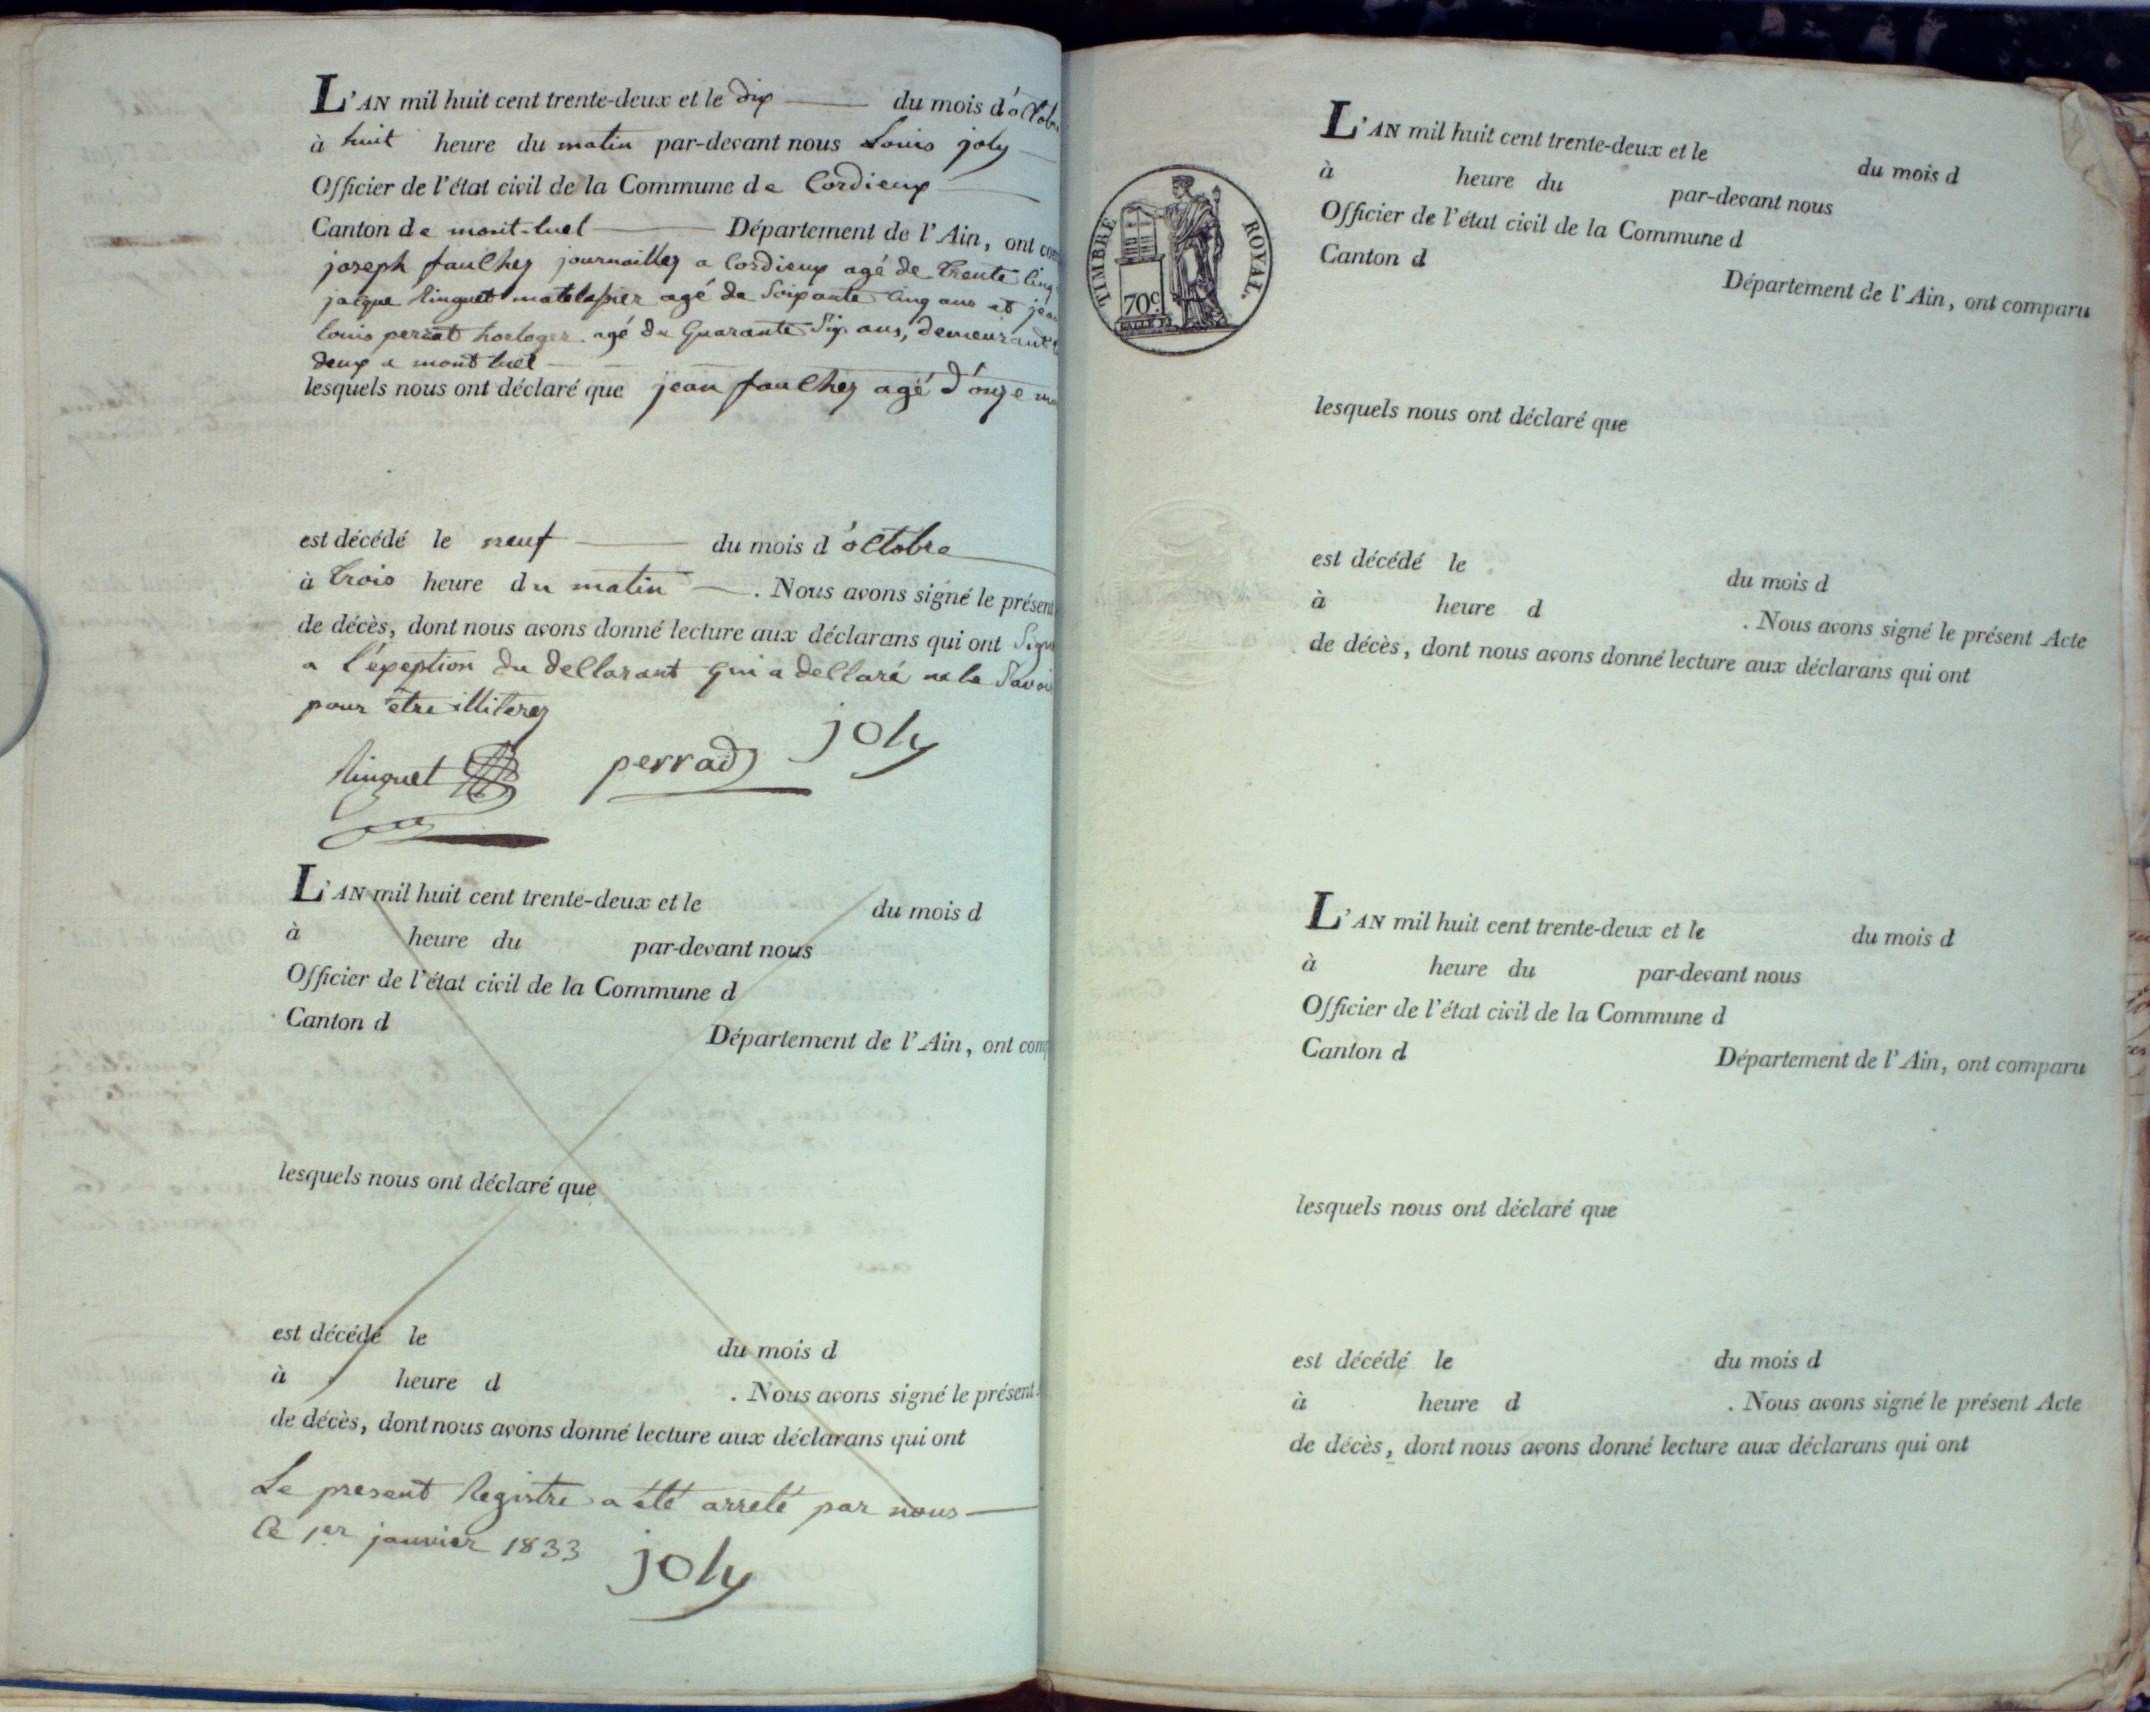 L'AN mil huit cent trente-deux et le dix du mois d'octob
à huit heure du matin par-devant nous Louis joly
Officier de l'état civil de la Commune de Cordieux
Canton de mont-luel Département de l'Ain, ont com
joseph fauchez journaillez a Cordieux agé de trente cinq
jacque Ringuet matelassier agé de Soixante cinq ans et jean
louis horloger agé de Quarante Six ans, demeurant
deux a mont luel
lesquels nous ont déclaré que jean fauchez agé d'onze m
est décédé le neuf du mois d'octobre
à trois heure du matin . Nous avons signé le présent
de décès, dont nous avons donné lecture aux déclarans qui ont Signé
a l'éxeption du dellarant qui a dellaré ne le Savoir
pour être illiterez
Ringuet perrad joly
L'AN mil huit cent trente-deux et le du mois d
à heure du par-devant nous
Officier de l'état civil de la Commune d
Canton d Département de l'Ain, ont comp
lesquels nous ont déclaré que
est décédé le du mois d
à heure d . Nous avons signé le présent
de décès, dont nous avons donné lecture aux déclarans qui ont
Le present Registre a été arreté par nous
Ce 1er janvier 1833
joly
TIMBRE ROYAL.
70c.
L'AN mil huit cent trente-deux et le du mois d
à heure du par-devant nous
Officier de l'état civil de la Commune d
Canton d Département de l'Ain, ont comparu
lesquels nous ont déclaré que
est décédé le du mois d
à heure d . Nous avons signé le présent Acte
de décès, dont nous avons donné lecture aux déclarans qui ont
L'AN mil huit cent trente-deux et le du mois d
à heure du par-devant nous
Officier de l'état civil de la Commune d
Canton d Département de l'Ain, ont comparu
lesquels nous ont déclaré que
est décédé le du mois d
à heure d . Nous avons signé le présent Acte
de décès, dont nous avons donné lecture aux déclarans qui ont